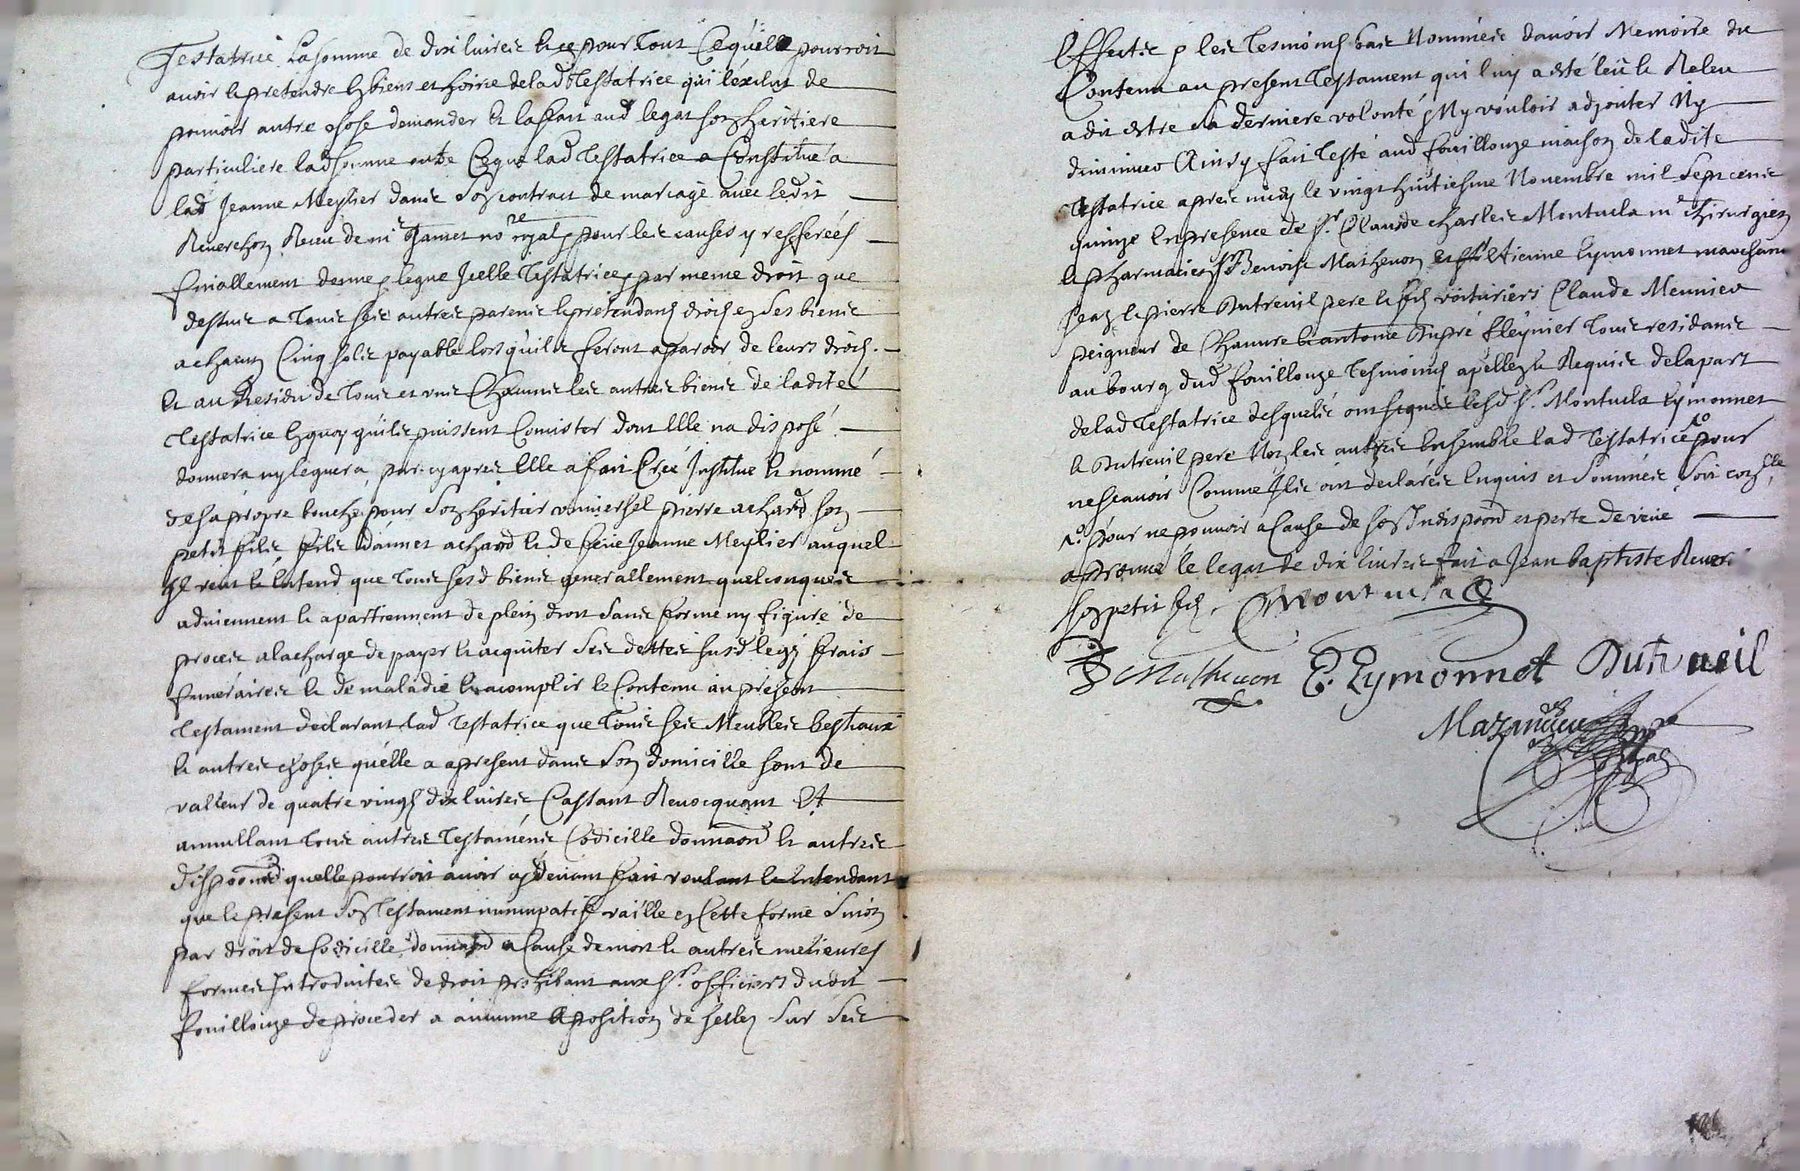 Testatrice la somme de dix livres et ce pour tout ce qu'elle pourroit
avoir et pretendre ez biens et hoirie de lad Testatrice qui l'exclut de
pouvoir autre chose demander et laissant aud legat son heritiere
particuliere lad somme outre ce que lad Testatrice a Constitué a
lad Jeanne Meylier dans son contract de mariage avec ledit
Reverchon Receu de me Gamet nore royal pour les causes y refferées
finallement donne et legue Jcelle Testatrice par meme droit que
dessus a tous ses autres parens et pretendans droit en ses biens
a chacun Cinq sols payable lors qu'ils feront aparoir de leurs droits
et au Residu de tous et uns Chacuns les autres biens de ladite
Testatrice en quoy qu'ils puissent Consister dont Elle na disposé
donnera ny leguera par cy apres Elle a fait Creé Institue et nommé
de sa propre bouche pour son heritier universel pierre achard son
petit fils, fils dannet achard et de feüe Jeanne Meylier auquel
El veut et Entend que tous sesd biens generallement quelconques
adviennent et apartiennent de plein droit sans forme ny figure de
proces a la charge de payer et acquiter ses dettes susd legs frais
funeraires et de maladie et acomplir le Contenu au present
Testament declarant lad Testatrice que tous ses Meubles bestiaux
et autres choses qu'elle a apresent dans son domicille sont de
valleur de quatre vingt dix livres Cassant Revocquant Et
annullant tous autres Testaments Codicille donnaon et autres
dispoon quelle pourroit avoir cy devant fait voulant et Entendant
que le present son Testament nuncupatif vaille en cette forme sinon
par droit de Codicille donnaon a Cause de mort et autres melieures
formes Introduites de droit prohibant aux srs officiers dudit
fouillouze de proceder a aucune aposition de sellez sur ses
Effects p les tesmoins bas Nommés davoir Memoire du
Contenu au present Testament qui luy a esté leü et Releu
a dit estre sa derniere volonté Ny vouloir adjouter Ny
diminuer Ainsy fait Testé aud fouillouze maison de ladite
Testatrice apres midy le vingt huitiesme Novembre mil sept cens
quinze En presence de sr Claude charles Montucla me chirurgien
et pharmacien sr Benoist Mathevon et sr Etienne Eymonnet marchans
Jean et pierre Dutreuil pere et fils voituriers Claude Meunier
peigneur de Chanvre et antoine Dupré Eleynier tous residans
au bourg dud fouillouze tesmoins apellez et Requis de la part
de lad Testatrice desquels ont signé lesd srs Montucla Eymonnet
et Dutreuil pere Non les autres Ensemble lad Testatrice pour
ne scavoir Comme Jls ont declarés Enquis et Sommés Soit conlle
pour ne pouvoir a Cause de son Indispoon et perte de veüe
aprouvé le legat de dix livres fait a Jean baptiste Rever.
son petit fils. Montucla
B Mathevon E. Eymonnet Dutreuil
Mazencieu